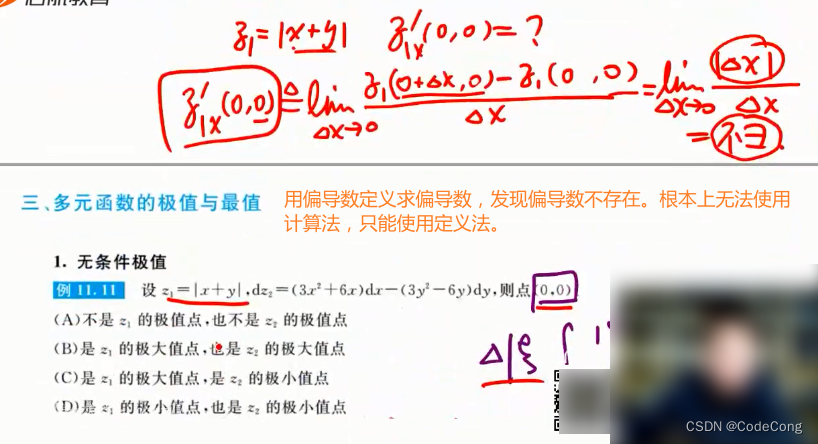 z₁=|x+y| z'₁ₓ(0,0)=?
z'₁ₓ(0,0) ≜ lim_{Δx→0} [z₁(0+Δx,0)-z₁(0,0)]/Δx = lim_{Δx→0} |Δx|/Δx
=不∃.
三、多元函数的极值与最值
用偏导数定义求偏导数，发现偏导数不存在。根本上无法使用
计算法，只能使用定义法。
1. 无条件极值
例 11.11 设 z₁=|x+y|,dz₂=(3x²+6x)dx-(3y²-6y)dy,则点(0,0)
(A)不是 z₁ 的极值点,也不是 z₂ 的极值点
(B)是 z₁ 的极大值点,也是 z₂ 的极大值点
(C)是 z₁ 的极大值点,是 z₂ 的极小值点
(D)是 z₁ 的极小值点,也是 z₂ 的极小值点
CSDN @CodeCong